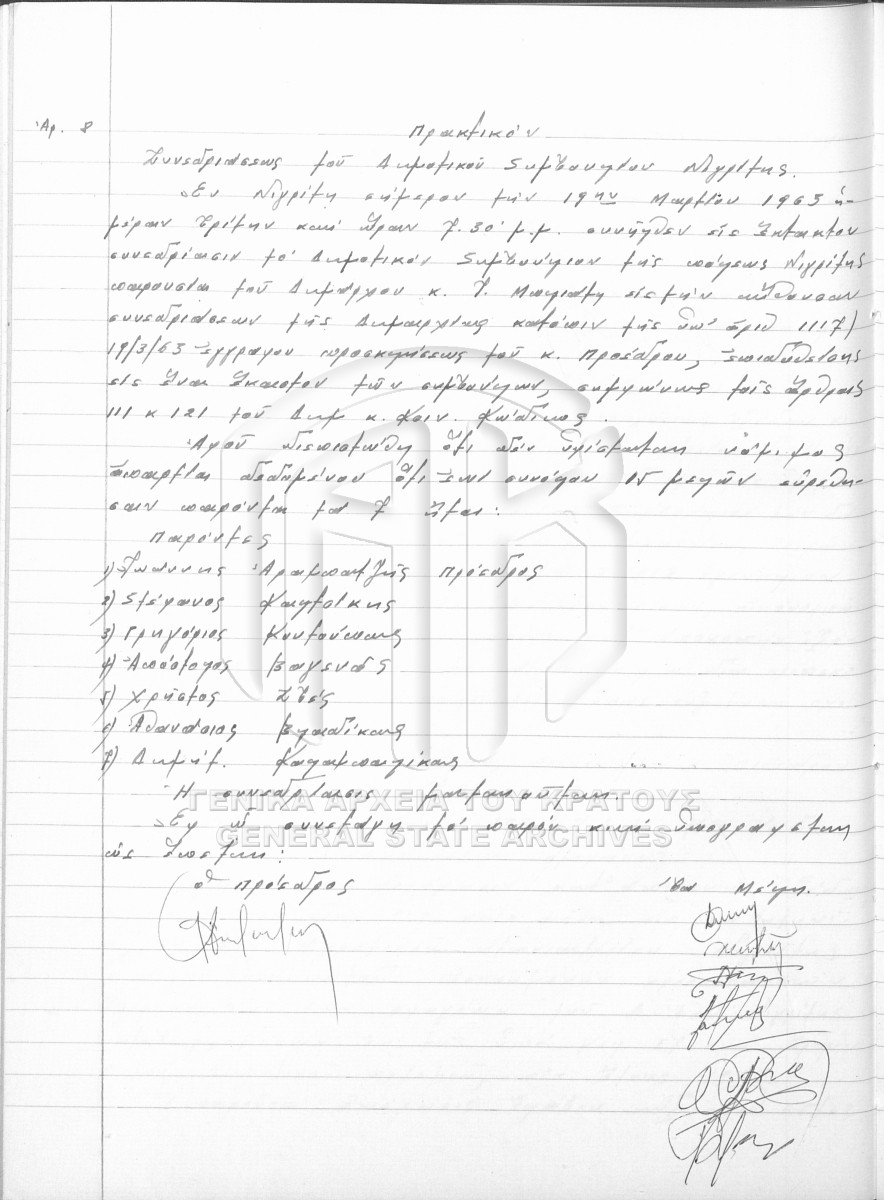 Ἀρ. 8
Πρακτικόν
Συνεδριάσεως τοῦ Δημοτικοῦ Συμβουλίου Νιγρίτης.
Ἐν Νιγρίτῃ σήμερον τὴν 19ην Μαρτίου 1963 ἡ-
μέραν Τρίτην καὶ ὥραν 7.30 μ.μ. συνῆλθεν εἰς ἔκτακτον
συνεδρίασιν τὸ Δημοτικόν Συμβούλιον τῆς πόλεως Νιγρίτης
παρουσίᾳ τοῦ Δημάρχου κ. Ἰ. εἰς τὴν αἴθουσαν
συνεδριάσεων τῆς Δημαρχίας κατόπιν τῆς ὑπ' ἀριθ 1117/
19/3/63 ἐγγράφου προσκλήσεως τοῦ κ. Προέδρου, ἐπιδοθείσης
εἰς ἕνα ἕκαστον τῶν συμβούλων, συμφώνως τοῖς ἄρθροις
111 κ 121 τοῦ Δημ κ. Κοιν. Κώδικος.
Ἀφοῦ διεπιστώθη ὅτι δὲν ὑφίσταται νόμιμος
ἀπαρτία δεδομένου ὅτι ἐπὶ συνόλου 15 μελῶν εὑρέθη-
σαν παρόντα τὰ 7 ἤτοι:
Παρόντες
1) Ἰωάννης Ἀραμπατζῆς Πρόεδρος
2) Στέφανος Καλτσίκης
3) Γρηγόριος Κουτούπας
4) Ἀπόστολος Βαγενᾶς
5) Χρῆστος
6) Ἀθανάσιος Βλαδίκας
7) Δημήτ. Καραμπαλίκας
Ἡ συνεδρίασις ματαιοῦται
Ἐφ' ᾧ συνετάγη τὸ παρόν καὶ ὑπογράφεται
ὡς ἕπεται:
Ὁ Πρόεδρος Τὰ Μέλη.
ΓΕΝΙΚΑ ΑΡΧΕΙΑ ΤΟΥ ΚΡΑΤΟΥΣ
GENERAL STATE ARCHIVES